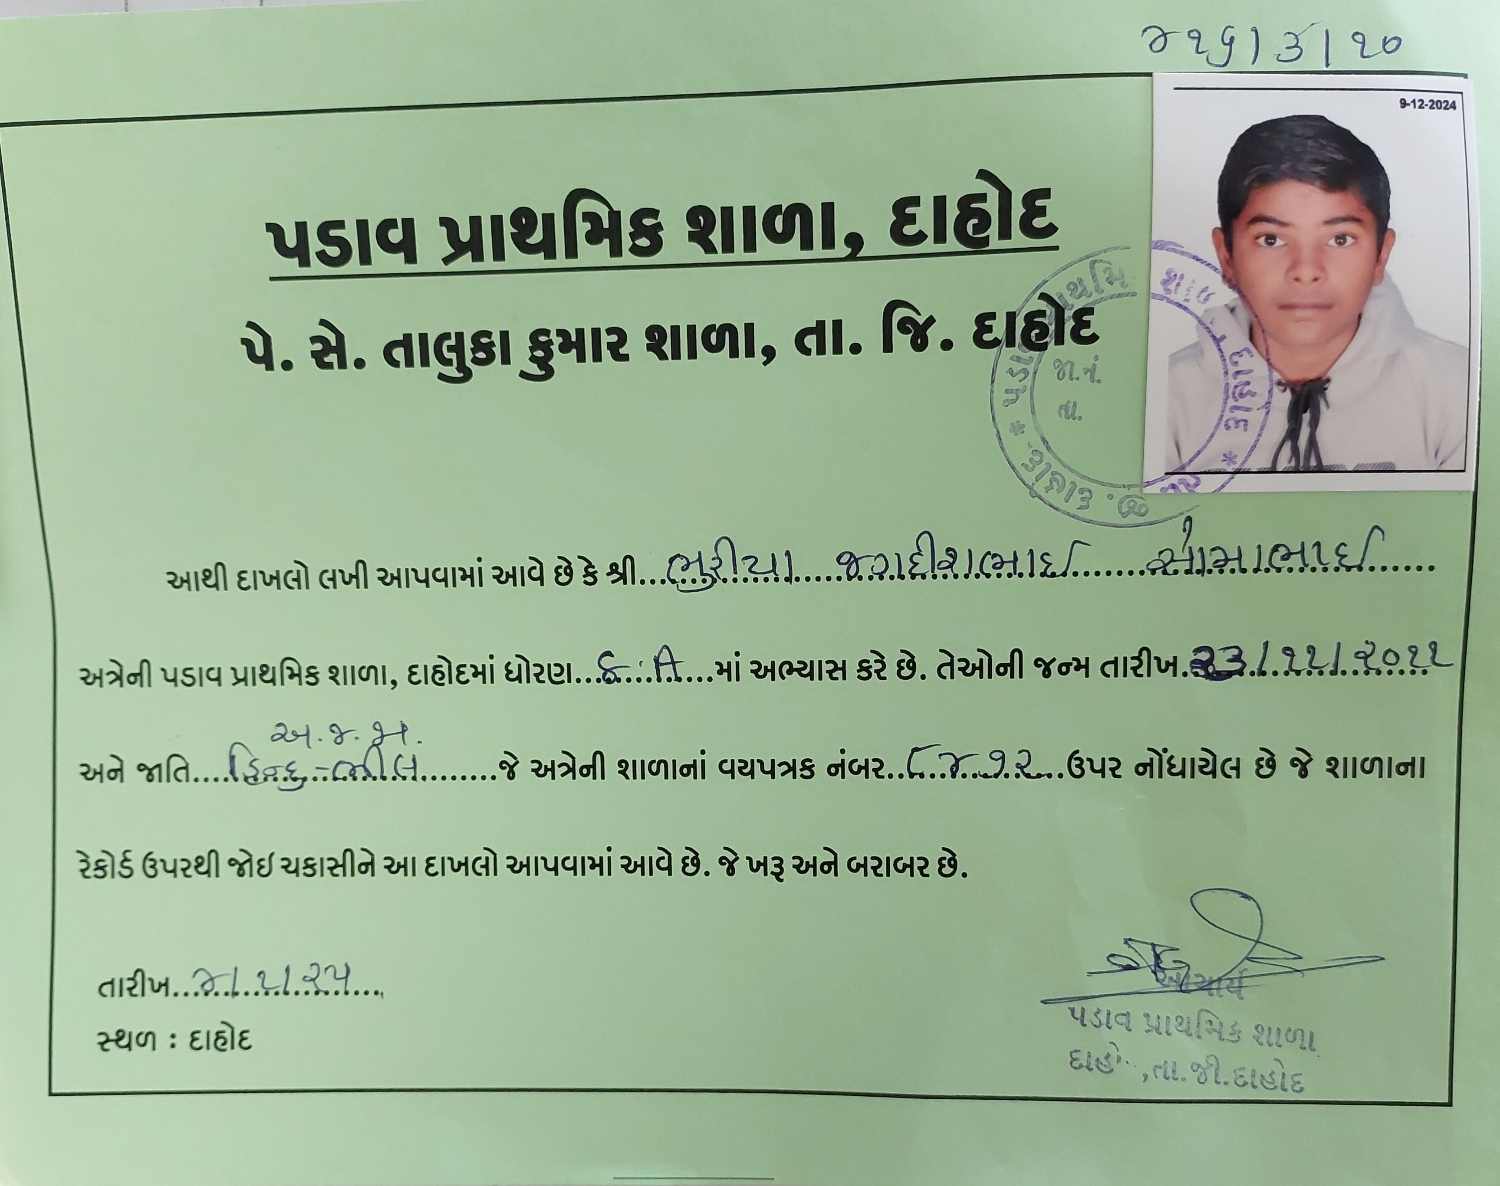 ૪૨૬/૩/૨૦
9-12-2024
પડાવ પ્રાથમિક શાળા, દાહોદ
પે. સે. તાલુકા કુમાર શાળા, તા. જિ. દાહોદ
જા.નં.
તા.
આથી દાખલો લખી આપવામાં આવે છે કે શ્રી...ભુરીયા જગદીશભાઈ સોમાભાઈ......
અત્રેની પડાવ પ્રાથમિક શાળા, દાહોદમાં ધોરણ...૬:A...માં અભ્યાસ કરે છે. તેઓની જન્મ તારીખ..૨૩/૧૧/૨૦૧૧
અ.જ.જા.
અને જાતિ....હિન્દુ-ભીલ.........જે અત્રેની શાળાનાં વયપત્રક નંબર..૮૪૭૨...ઉપર નોંધાયેલ છે જે શાળાના
રેકોર્ડ ઉપરથી જોઈ ચકાસીને આ દાખલો આપવામાં આવે છે. જે ખરૂ અને બરાબર છે.
તારીખ...૪/૧/૨૫....
સ્થળ : દાહોદ
આચાર્ય
પડાવ પ્રાથમિક શાળા
તા.જી.દાહોદ